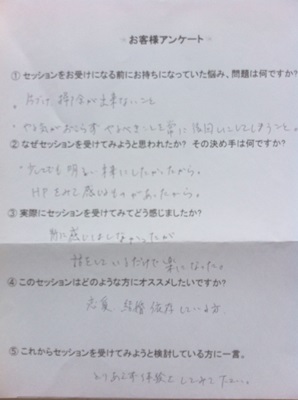 お客様アンケート
① セッションをお受けになる前にお持ちになっていた悩み、問題は何ですか?
・片付け、掃除が出来ないこと
・やる気がおこらず やるべきことを常に後回しにしてしまうこと。
② なぜセッションを受けてみようと思われたか? その決め手は何ですか?
・少しでも明るい未来にしたかったから。
HPをみて感じるものがあったから。
③ 実際にセッションを受けてみてどう感じましたか?
特に感じはしなかったが
話をしているだけで楽になった。
④ このセッションはどのような方にオススメしたいですか?
恋愛、結婚 依存している方
⑤ これからセッションを受けてみようと検討している方に一言。
とりあえず体験してみて下さい。